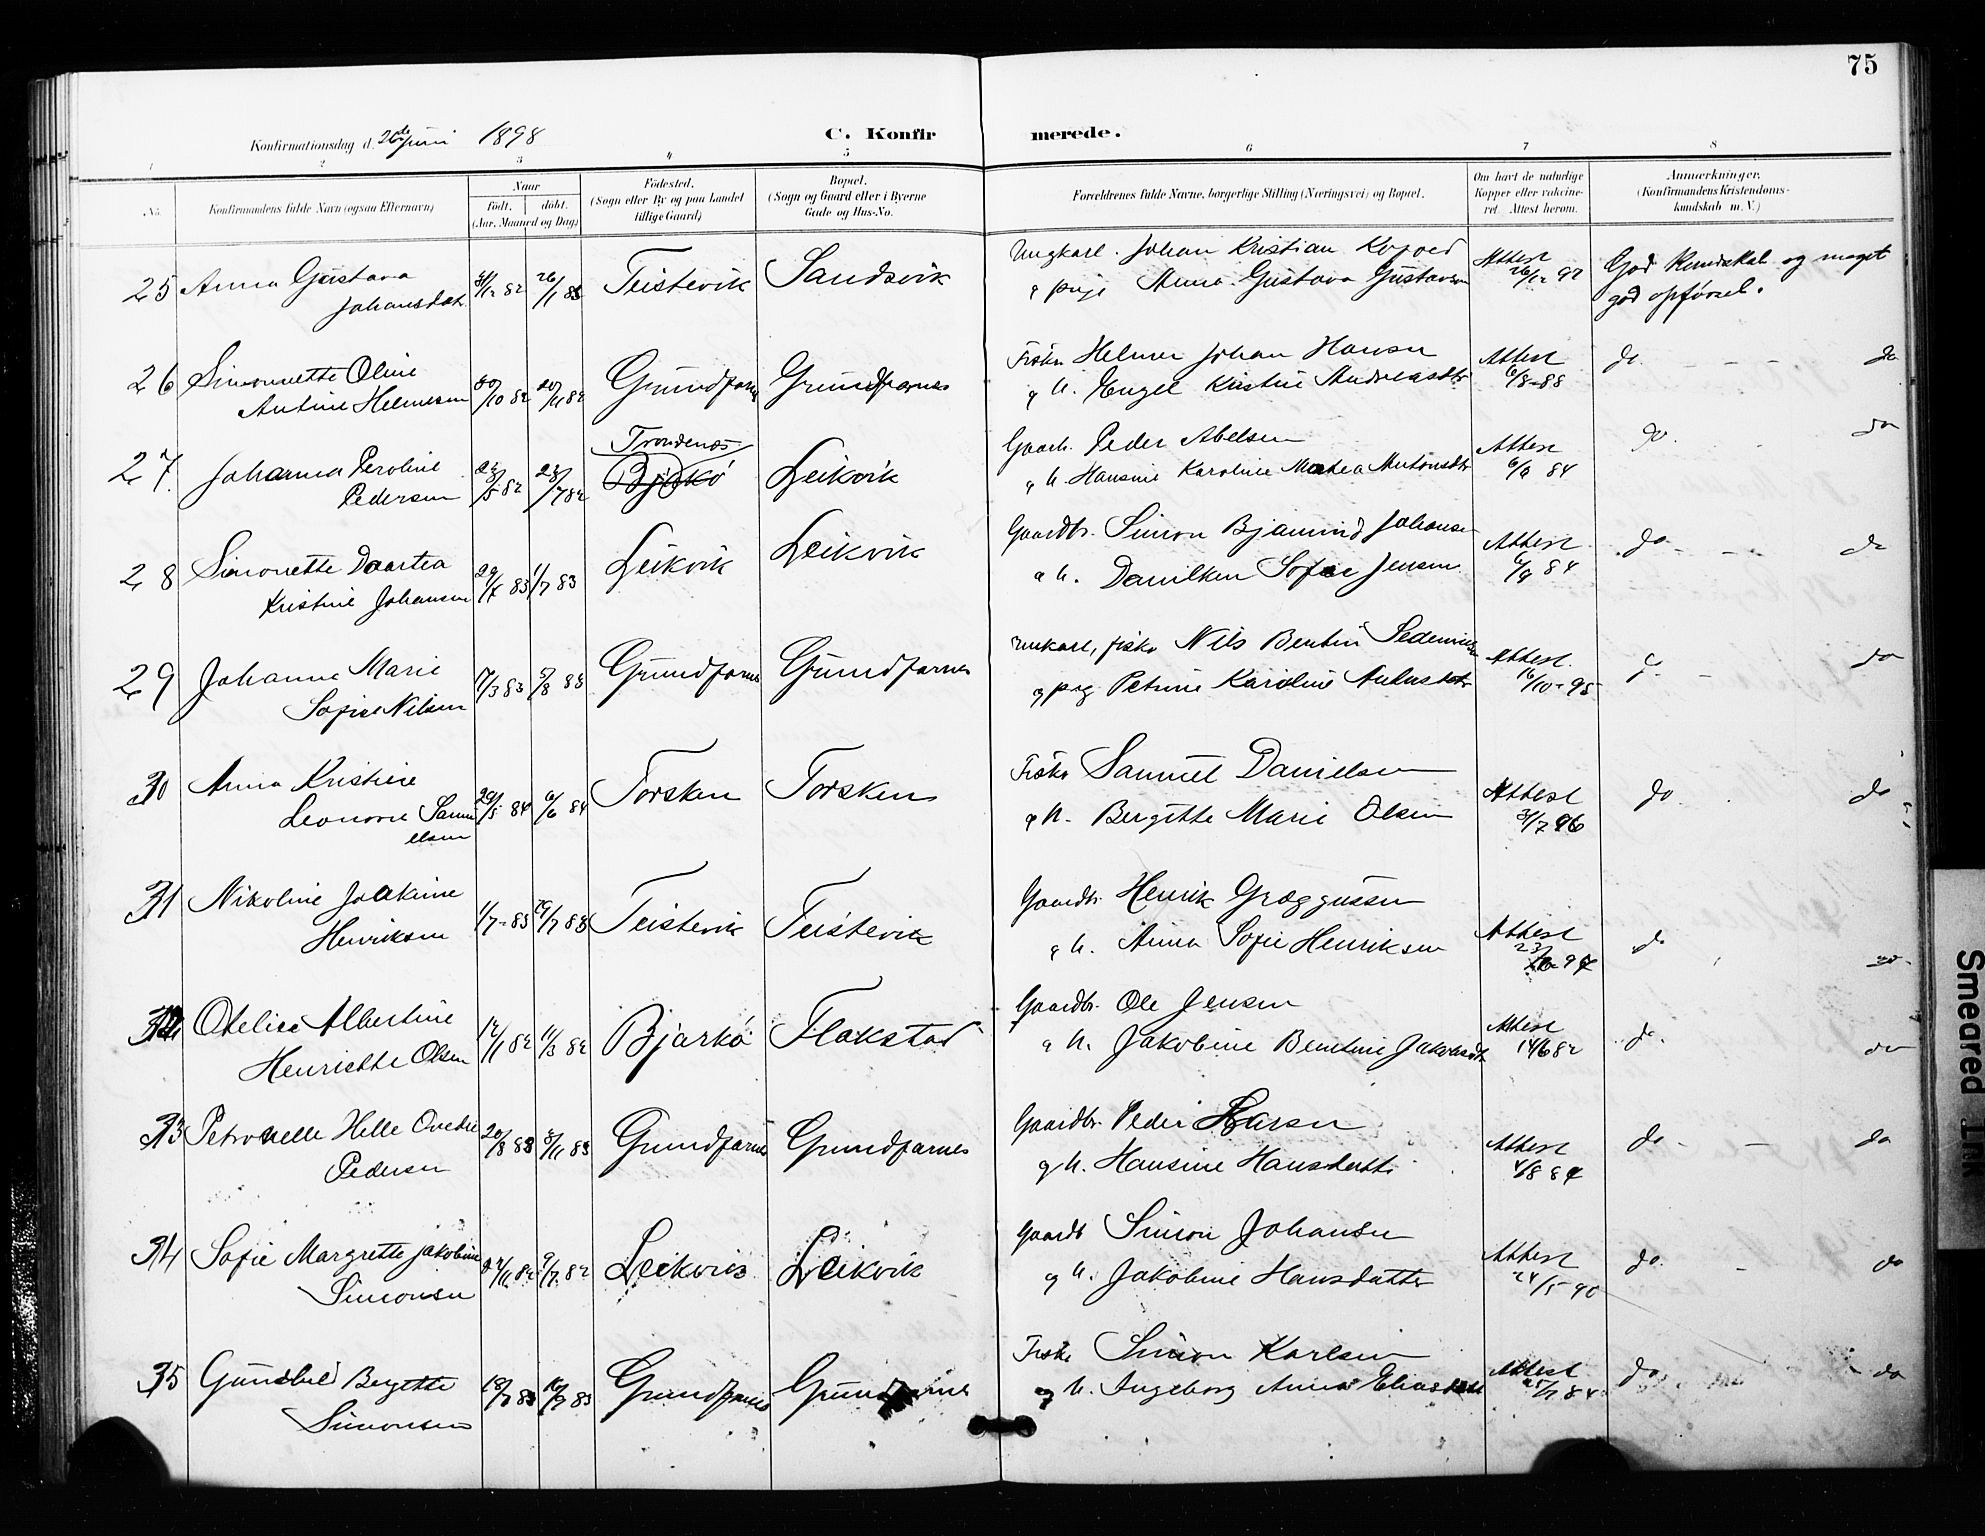 75
Konfirmationsdag d. 26de Juni 1898
C. Konfirmerede.
1 2 3 4 5 6 7 8
No.
Konfirmandens fulde Navn (ogsaa Efternavn)
Naar
født. døbt.
(Aar, Maaned og Dag)
Fødested.
(Sogn eller By og paa Landet
tillige Gaard)
Bopæl.
(Sogn og Gaard eller i Byerne
Gade og Hus-No.
Forældrenes fulde Navne, borgerlige Stilling (Næringsvei) og Bopæl.
Om havt de naturlige
Kopper eller vaccine-
ret. Attest herom.
Anmærkninger.
(Konfirmandens Kristendoms-
kundskab m. V.)
25 Anna Gustava
Johansdat.
31/12 82 26/1 83 Teistevik Sandsvik
Ungkarl. Johan Kristian
og pige Anna Gustava
Attest
God Kundskab og meget
god opførsel.
26 Simonette Oline
Antine Helmersen
30/10 82 20/11 82 Grundfarnes Grundfarnes
Fisker Helmer Johan Hansen
og h. Engel Kristine Andreasdtr
Attest
6/8-88
do. - - do
27. Johanna Peroline
Pedersen
23/5 82 23/7 82 Trondenæs
Bjarkö
Leikvik
Gaardb. Peder Abelsen
og h. Hansine Karoline Matea Antonsdtr
Attest
6/9 84
do. do
28 Simonette Doartea
Kristine Johansen
1/7 83 Leikvik Leikvik
Gaardbr. Simon Bjamind Johansen
og h. Danilken Sofie Jensen
Attest
6/9 84
do - - do
29 Johanne Marie
Sofie Nilsen
7/3 83 5/8 83 Grundfarnes Grundfarnes
Unkarl, fisker Nils Bentin
og pig Petrine Karoline
Attest.
16/10-95
do
30 Anna Kristine
Leonore Samu
elsen
29/5 84 6/6 84 Torsken Torsken
Fisker Samuel Danielsen
og h. Bergitte Marie Olsen
Attest
31/7 96
do. do
31 Nikoline Joakime
Henriksen
1/7-83 29/7 83 Teistevik Teistevik
Gaardbr. Henrik Græggussen
og h. Anna Sofie Henriksen
Attest
do
32 Otelise Albertine
Henriette Olsen
Bjarkö Flakstad
Gaardbr. Ole Jensen
og h. Jakobine Bentine Jakobsdtr
Attest
14/6 82
do.
33 Petronelle Helle Ovedie
Pedersen
20/8 83 8/11 83 Grundfarnes Grundfarnes
Gaardbr. Peder Larsen
og h. Hansine Hansdatter
Attest
4/8 84
do - - do
34 Sofie Margrette Jakobine
Simonsen
Leikvik Leikvik
Gaardb Simon Johansen
og h. Jakobine Hansdatter
Attest
24/5-90
do. - do
35 Gunshel Bergette
Simonsen
Grundfarnes Grundfarnes
Fisker Simon Karlsen
og h. Ingeborg Anna Eliasdatt
Attest
do - do
Smeared ink